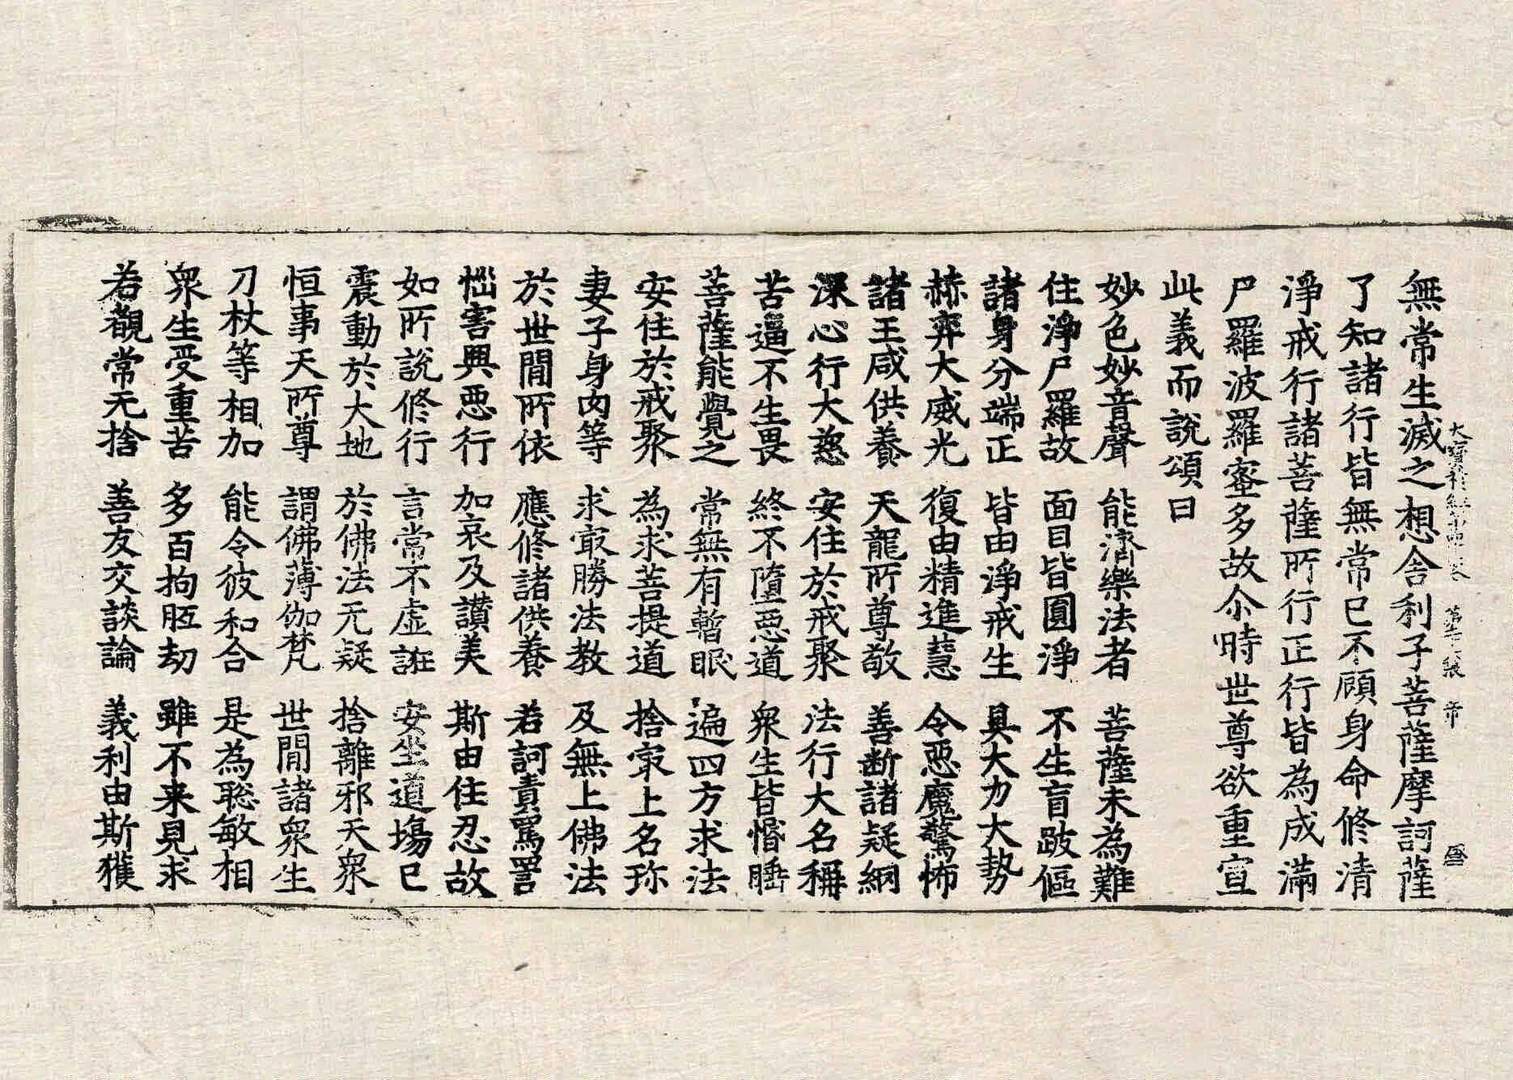 無常生滅之想舍利子菩薩摩訶薩
了知諸行皆無常已不顧身命修清
淨戒行諸菩薩所行正行皆為成滿
尸羅波羅蜜多故尒時世尊欲重宣
此義而說頌曰
妙色妙音聲　能濟樂法者　菩薩未為難
住淨尸羅故　面目皆圓淨　不生盲跛傴
諸身分端正　皆由淨戒生　具大力大勢
赫弈大威光　復由精進慧　令惡魔驚怖
諸王咸供養　天龍所尊敬　善断諸疑網
深心行大慈　安住於戒聚　法行大名稱
苦逼不生畏　終不墮惡道　眾生皆惛睡
菩薩能覺之　常無有暫眠　遍四方求法
安住於戒聚　為求菩提道　捨㝡上名珎
妻子身肉等　求㝡勝法教　及無上佛法
於世間所依　應修諸供養　若訶責罵詈
惱害興惡行　加哀及讚美　斯由住忍故
如所說修行　言常不虛誑　安坐道場已
震動於大地　於佛法无疑　捨離邪天眾
恒事天所尊　謂佛薄伽梵　世間諸眾生
刀杖等相加　能令彼和合　是為聡敏相
眾生受重苦　多百拘胝劫　雖不来見求
若觀常无捨　善友交談論　義利由斯獲